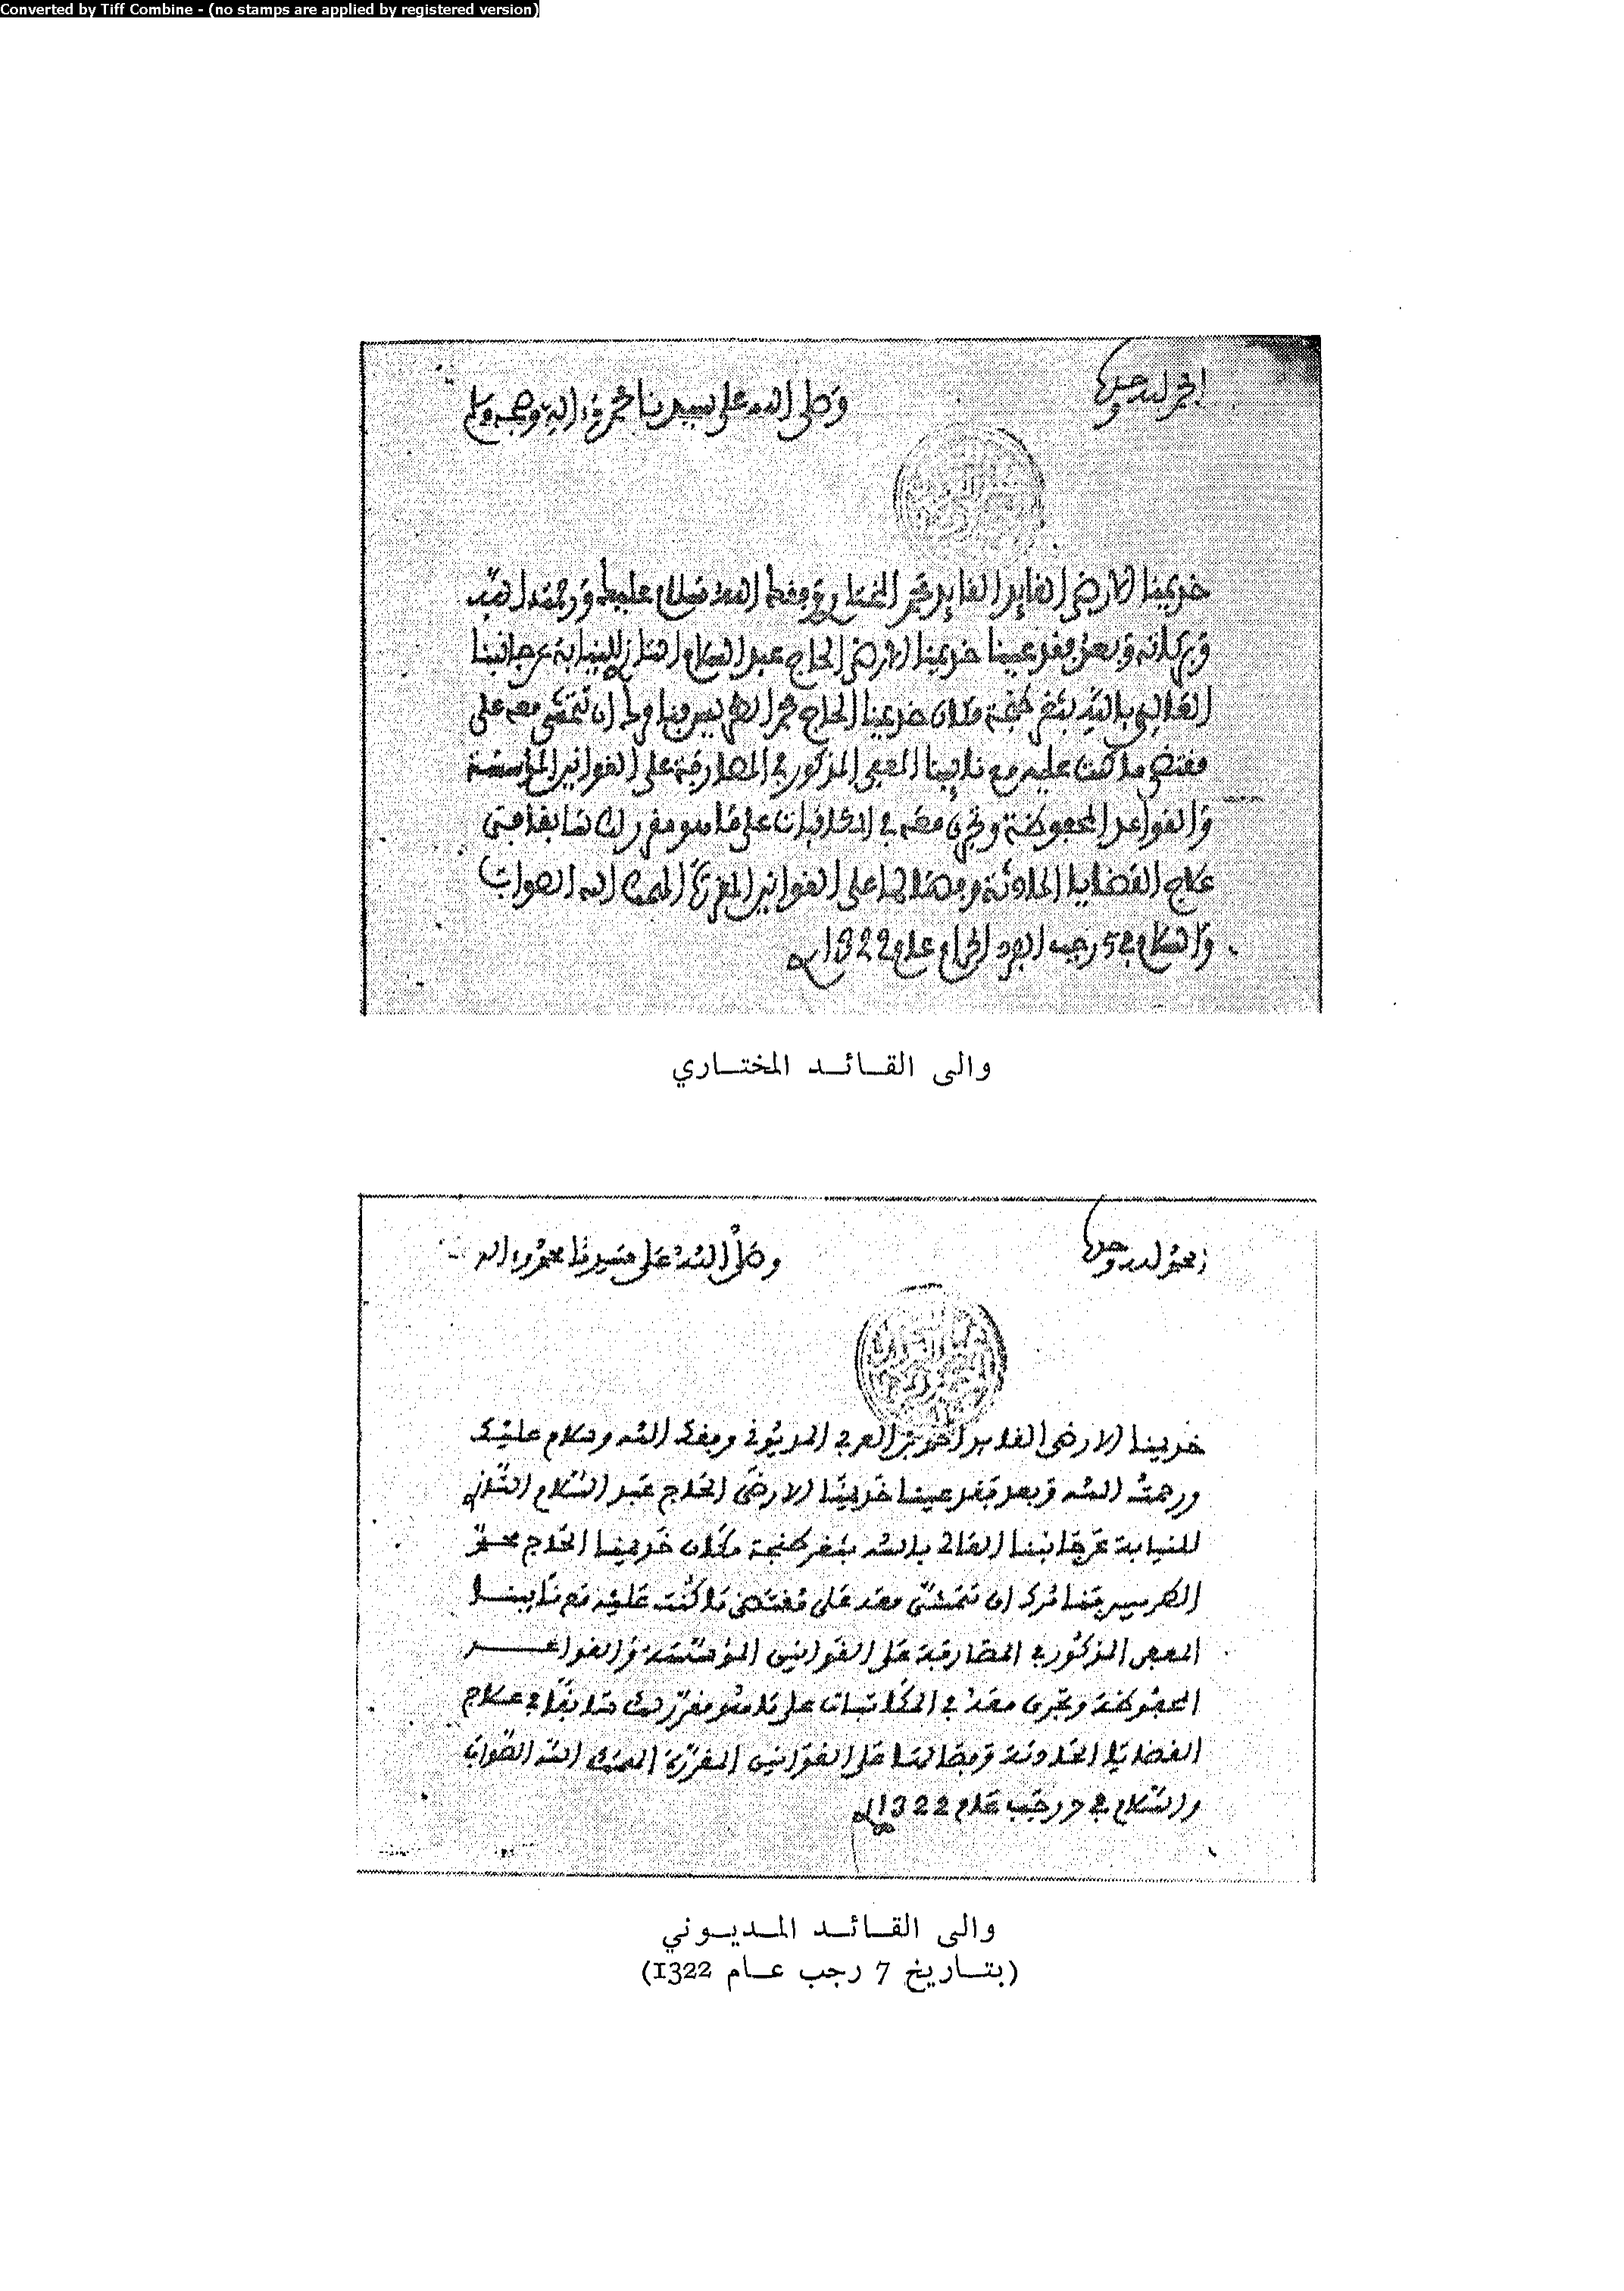 Converted by Tiff Combine - (no stamps are applied by registered version)
الحمد لله وحده
وصلى الله على سيدنا محمد وءاله وصحبه وسلم
خديمنا الارضى القايد محمد المختاري وفقك الله وسلام عليك ورحمة الله
وبركاته وبعد فقد عينا خديمنا الارضى الحاج عبد السلام التازي للنيابة عن جانبنا
العالي بالله بثغر طنجة مكان خديمنا الحاج محمد الطريس ان تتمشى معه على
مقتضى ما كنت عليه مع نايبنا المعفى المذكور في المصارفة على القوانين المؤسسة
والقواعد المحفوظة وتجري معه في المكاتبات على ما هو مقرر لك سابقا في
علاج القضايا الحادثة وفصالها على القوانين المقررة الهمك الله الصواب
والسلام في 5 رجب الفرد الحرام عام 1322
والى القائد المختاري
الحمد لله وحده
وصلى الله على سيدنا محمد وءاله
خديمنا الارضى القايد العربي المديوني وفقك الله وسلام عليك
ورحمة الله وبعد فقد عينا خديمنا الارضى الحاج عبد السلام التازي
للنيابة عن جانبنا العالي بالله بثغر طنجة مكان خديمنا الحاج محمد
الطريس فنامرك ان تتمشى معه على مقتضى ما كنت عليه مع نايبنا
المعفى المذكور في المصارفة على القوانين المؤسسة والقواعد
المحفوظة وتجري معه في المكاتبات على ما هو مقرر لك سابقا في علاج
القضايا الحادثة وفصالها على القوانين المقررة الهمك الله الصواب
والسلام في 7 رجب عام 1322
والى القائد المديوني
(بتاريخ 7 رجب عام 1322)